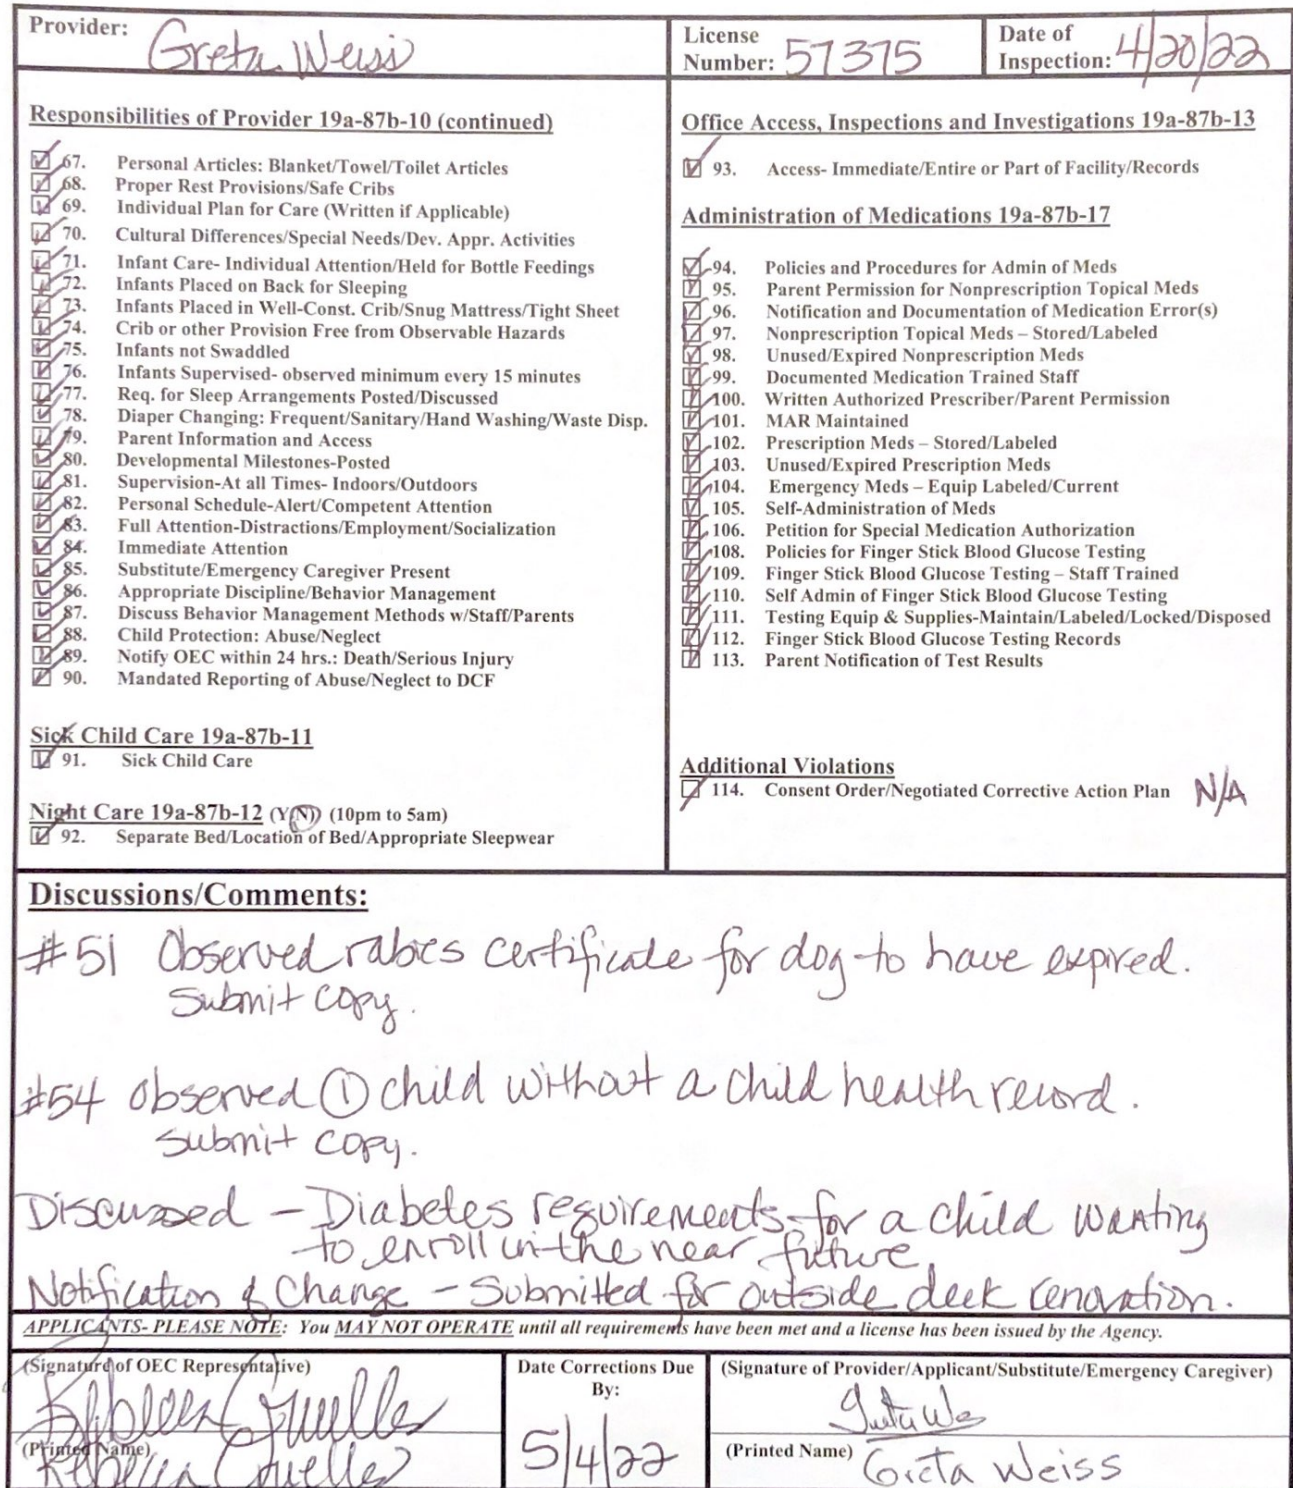 Provider: Greta Weiss
License Number: 57375
Date of Inspection: 4/20/22
Responsibilities of Provider 19a-87b-10 (continued)
67. Personal Articles: Blanket/Towel/Toilet Articles
68. Proper Rest Provisions/Safe Cribs
69. Individual Plan for Care (Written if Applicable)
70. Cultural Differences/Special Needs/Dev. Appr. Activities
71. Infant Care- Individual Attention/Held for Bottle Feedings
72. Infants Placed on Back for Sleeping
73. Infants Placed in Well-Const. Crib/Snug Mattress/Tight Sheet
74. Crib or other Provision Free from Observable Hazards
75. Infants not Swaddled
76. Infants Supervised- observed minimum every 15 minutes
77. Req. for Sleep Arrangements Posted/Discussed
78. Diaper Changing: Frequent/Sanitary/Hand Washing/Waste Disp.
79. Parent Information and Access
80. Developmental Milestones-Posted
81. Supervision-At all Times- Indoors/Outdoors
82. Personal Schedule-Alert/Competent Attention
83. Full Attention-Distractions/Employment/Socialization
84. Immediate Attention
85. Substitute/Emergency Caregiver Present
86. Appropriate Discipline/Behavior Management
87. Discuss Behavior Management Methods w/Staff/Parents
88. Child Protection: Abuse/Neglect
89. Notify OEC within 24 hrs.: Death/Serious Injury
90. Mandated Reporting of Abuse/Neglect to DCF
Sick Child Care 19a-87b-11
91. Sick Child Care
Night Care 19a-87b-12 (Y/N) (10pm to 5am)
92. Separate Bed/Location of Bed/Appropriate Sleepwear
Office Access, Inspections and Investigations 19a-87b-13
93. Access- Immediate/Entire or Part of Facility/Records
Administration of Medications 19a-87b-17
94. Policies and Procedures for Admin of Meds
95. Parent Permission for Nonprescription Topical Meds
96. Notification and Documentation of Medication Error(s)
97. Nonprescription Topical Meds – Stored/Labeled
98. Unused/Expired Nonprescription Meds
99. Documented Medication Trained Staff
100. Written Authorized Prescriber/Parent Permission
101. MAR Maintained
102. Prescription Meds – Stored/Labeled
103. Unused/Expired Prescription Meds
104. Emergency Meds – Equip Labeled/Current
105. Self-Administration of Meds
106. Petition for Special Medication Authorization
108. Policies for Finger Stick Blood Glucose Testing
109. Finger Stick Blood Glucose Testing – Staff Trained
110. Self Admin of Finger Stick Blood Glucose Testing
111. Testing Equip & Supplies-Maintain/Labeled/Locked/Disposed
112. Finger Stick Blood Glucose Testing Records
113. Parent Notification of Test Results
Additional Violations
114. Consent Order/Negotiated Corrective Action Plan N/A
Discussions/Comments:
#51 Observed rabies certificate for dog to have expired.
Submit copy.
#54 Observed ① child without a child health record.
Submit copy.
Discussed – Diabetes requirements for a child wanting
to enroll in the near future
Notification of Change – Submitted for outside deck renovation.
APPLICANTS- PLEASE NOTE: You MAY NOT OPERATE until all requirements have been met and a license has been issued by the Agency.
(Signature of OEC Representative)
(Printed Name) Rebecca
Date Corrections Due By:
5/4/22
(Signature of Provider/Applicant/Substitute/Emergency Caregiver)
(Printed Name) Greta Weiss